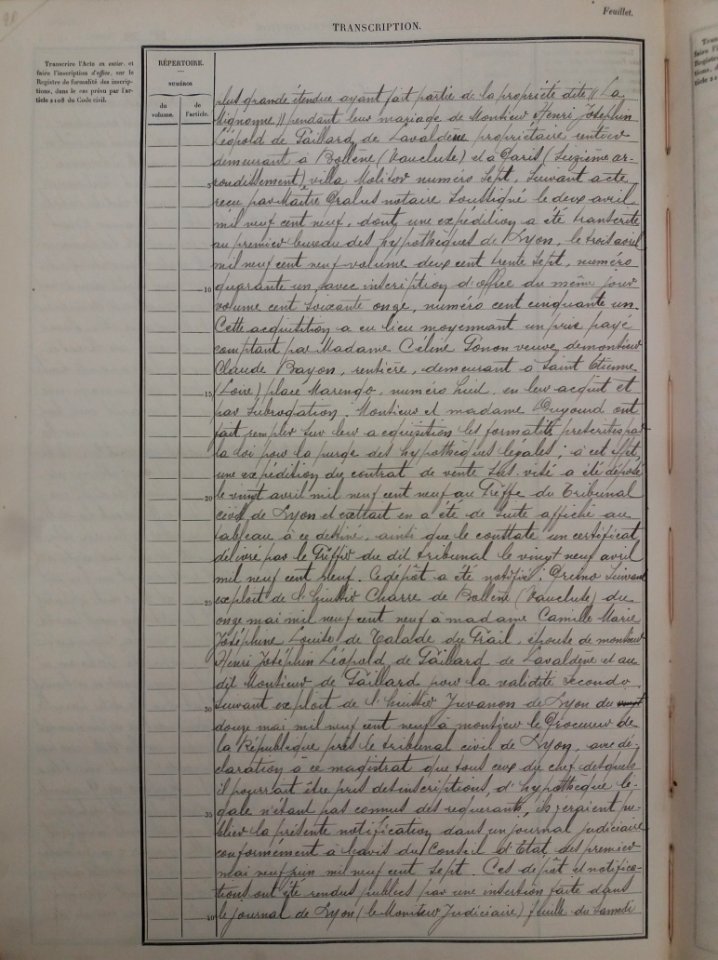 Feuillet.
TRANSCRIPTION.
Transcrire l'Acte en entier, et
faire l'inscription d'office, sur le
Registre de formalité des inscrip-
tions, dans le cas prévu par l'ar-
ticle 2108 du Code civil.
RÉPERTOIRE.
NUMÉROS
du volume.
de l'article.
plus grande étendue ayant fait partie de la propriété dite "La
Mignonne" pendant leur mariage de Monsieur Henri Joséphin
Léopold de Gaillard de Lavaldène propriétaire rentier
demeurant à Bollène (Vaucluse) et à Paris (Seizième ar-
5 rondissement), villa Molitor numéro sept, suivant acte
reçu par Maître Pralus notaire soussigné le deux avril
mil neuf cent neuf, dont une expédition a été transcrite
au premier bureau des hypothèques de Lyon, le trois avril
mil neuf cent neuf volume deux cent trente sept, numéro
10 quarante un, avec inscription d'office du même jour
volume cent soixante onze, numéro cent cinquante un.
Cette acquisition a eu lieu moyennant un prix payé
comptant par Madame Céline Ponon veuve de monsieur
Claude Bayon, rentière, demeurant à Saint Etienne
15 (Loire) place Marengo, numéro huit, en leur acquit et
par subrogation. Monsieur et madame ont
fait remplir sur leur acquisition les formalités prescrites par
la loi pour la purge des hypothèques légales; à cet effet,
une expédition du contrat de vente sus visé a été déposée
20 le vingt avril mil neuf cent neuf au Greffe du Tribunal
civil de Lyon et extrait en a été de suite affiché au
tableau à ce destiné, ainsi que le constate un certificat
délivré par le Greffier du dit tribunal le vingt neuf avril
mil neuf cent neuf. Ce dépôt a été notifié: Primo Suivant
25 exploit de l'huissier Charre de Bollène (Vaucluse) du
onze mai mil neuf cent neuf à madame Camille Marie
Joséphine Louise de Calade du Grail, épouse de monsieur
Henri Joséphin Léopold de Gaillard de Lavaldène et au
dit Monsieur de Gaillard pour la validité Secondo
30 suivant exploit de l'huissier Juvanon de Lyon du vingt
douze mai mil neuf cent neuf à monsieur le Procureur de
la République près le tribunal civil de Lyon, avec dé-
claration à ce magistrat que tous ceux du chef desquels
il pourrait être pris des inscriptions d'hypothèque lé-
35 gale n'étant pas connus des requérants, ils feraient pu-
blier la présente notification dans un journal judiciaire
conformément à l'avis du Conseil d'Etat des premier
mai neuf juin mil neuf cent sept. Ces dépôt et notifica-
tions ont été rendus publics par une insertion faite dans
40 le journal de Lyon (le Moniteur Judiciaire) feuille du samedi